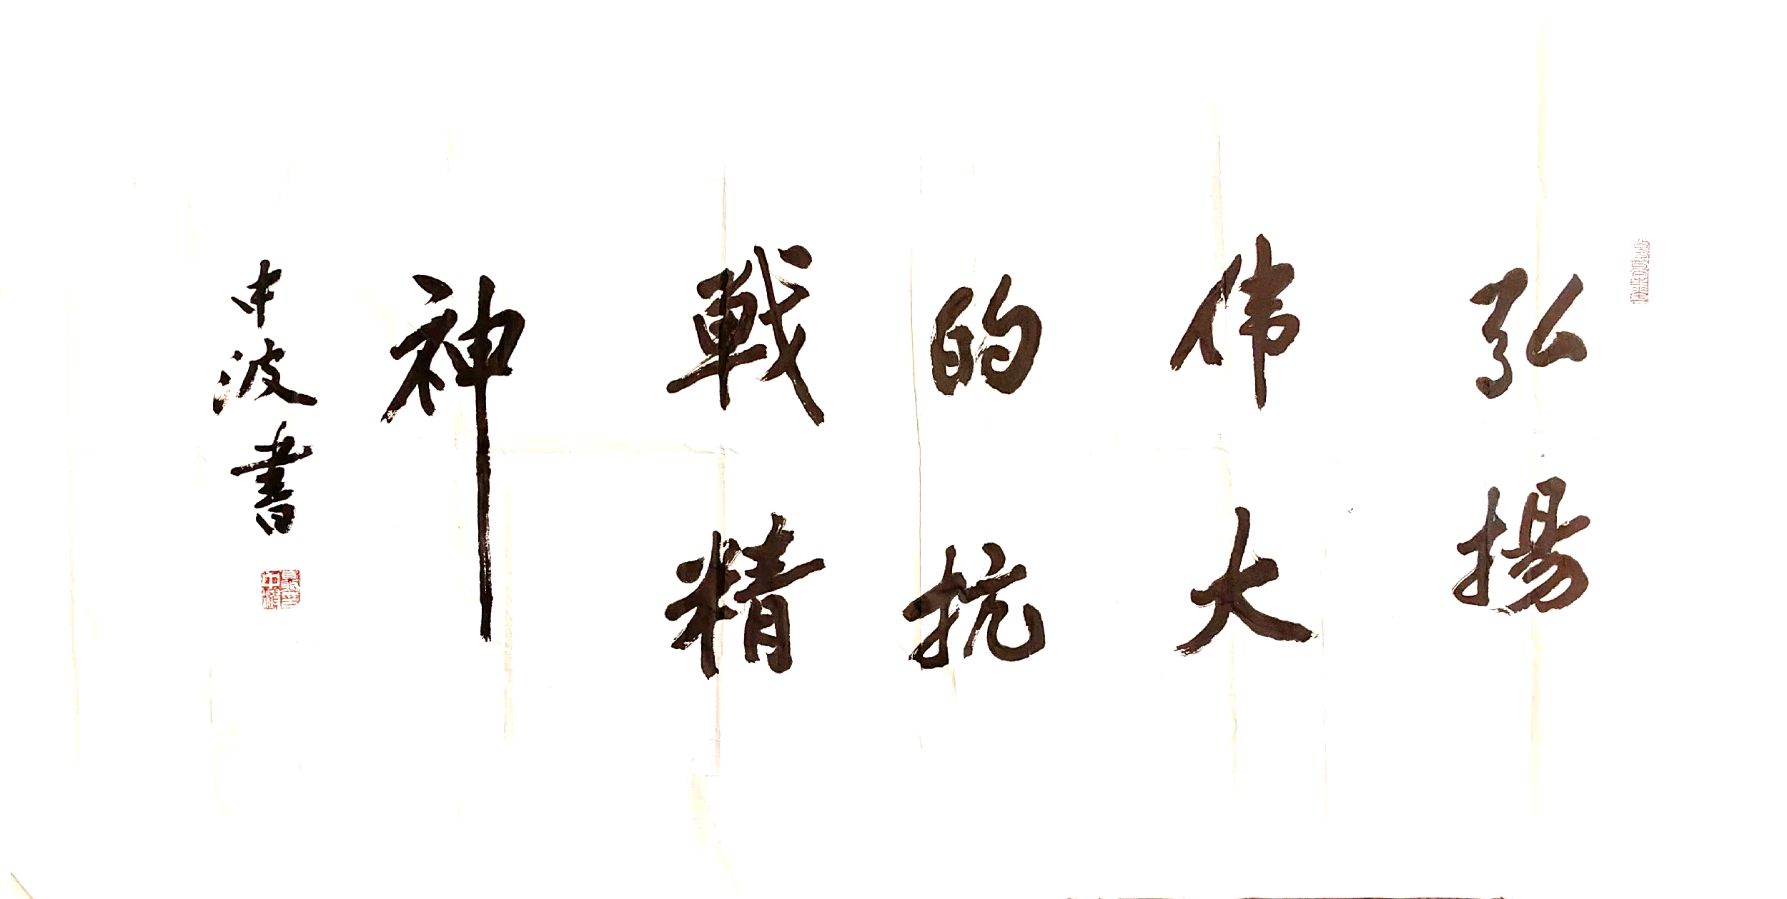 弘揚
伟大
的抗
戰精
神
中波書